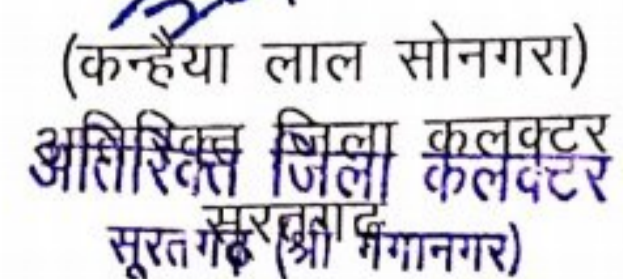 (कन्हैया लाल सोनगरा)
अतिरिक्त जिला कलक्टर
अतिरिक्त जिला कलक्टर
सूरतगढ
सूरतगढ (श्री गंगानगर)